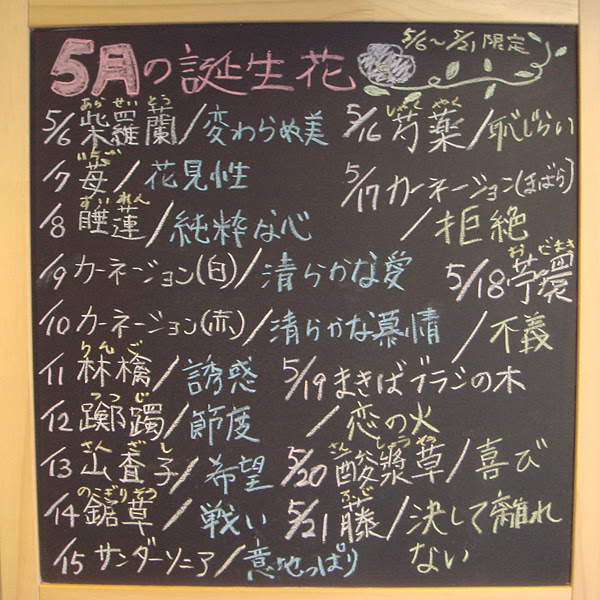 5月の誕生花
5/6～5/21限定
5/6 紫羅蘭/変わらぬ美
あらせいとう
/7 苺/花見性
いちご
/8 睡蓮/純粋な心
すいれん
/9 カーネーション(白)/清らかな愛
/10 カーネーション(赤)/清らかな慕情
/11 林檎/誘惑
りんご
/12 躑躅/節度
つつじ
/13 山査子/希望
さんざし
/14 鋸草/戦い
のこぎりそう
/15 サンダーソニア/意地っぱり
5/16 芍薬/恥じらい
しゃくやく
5/17 カーネーション(まばら)
/拒絶
5/18 苧環
おだまき
/不義
5/19 まきばブラシの木
/恋の火
5/20 酸漿草/喜び
さんしょうそう
5/21 藤/決して離れ
ふじ
ない